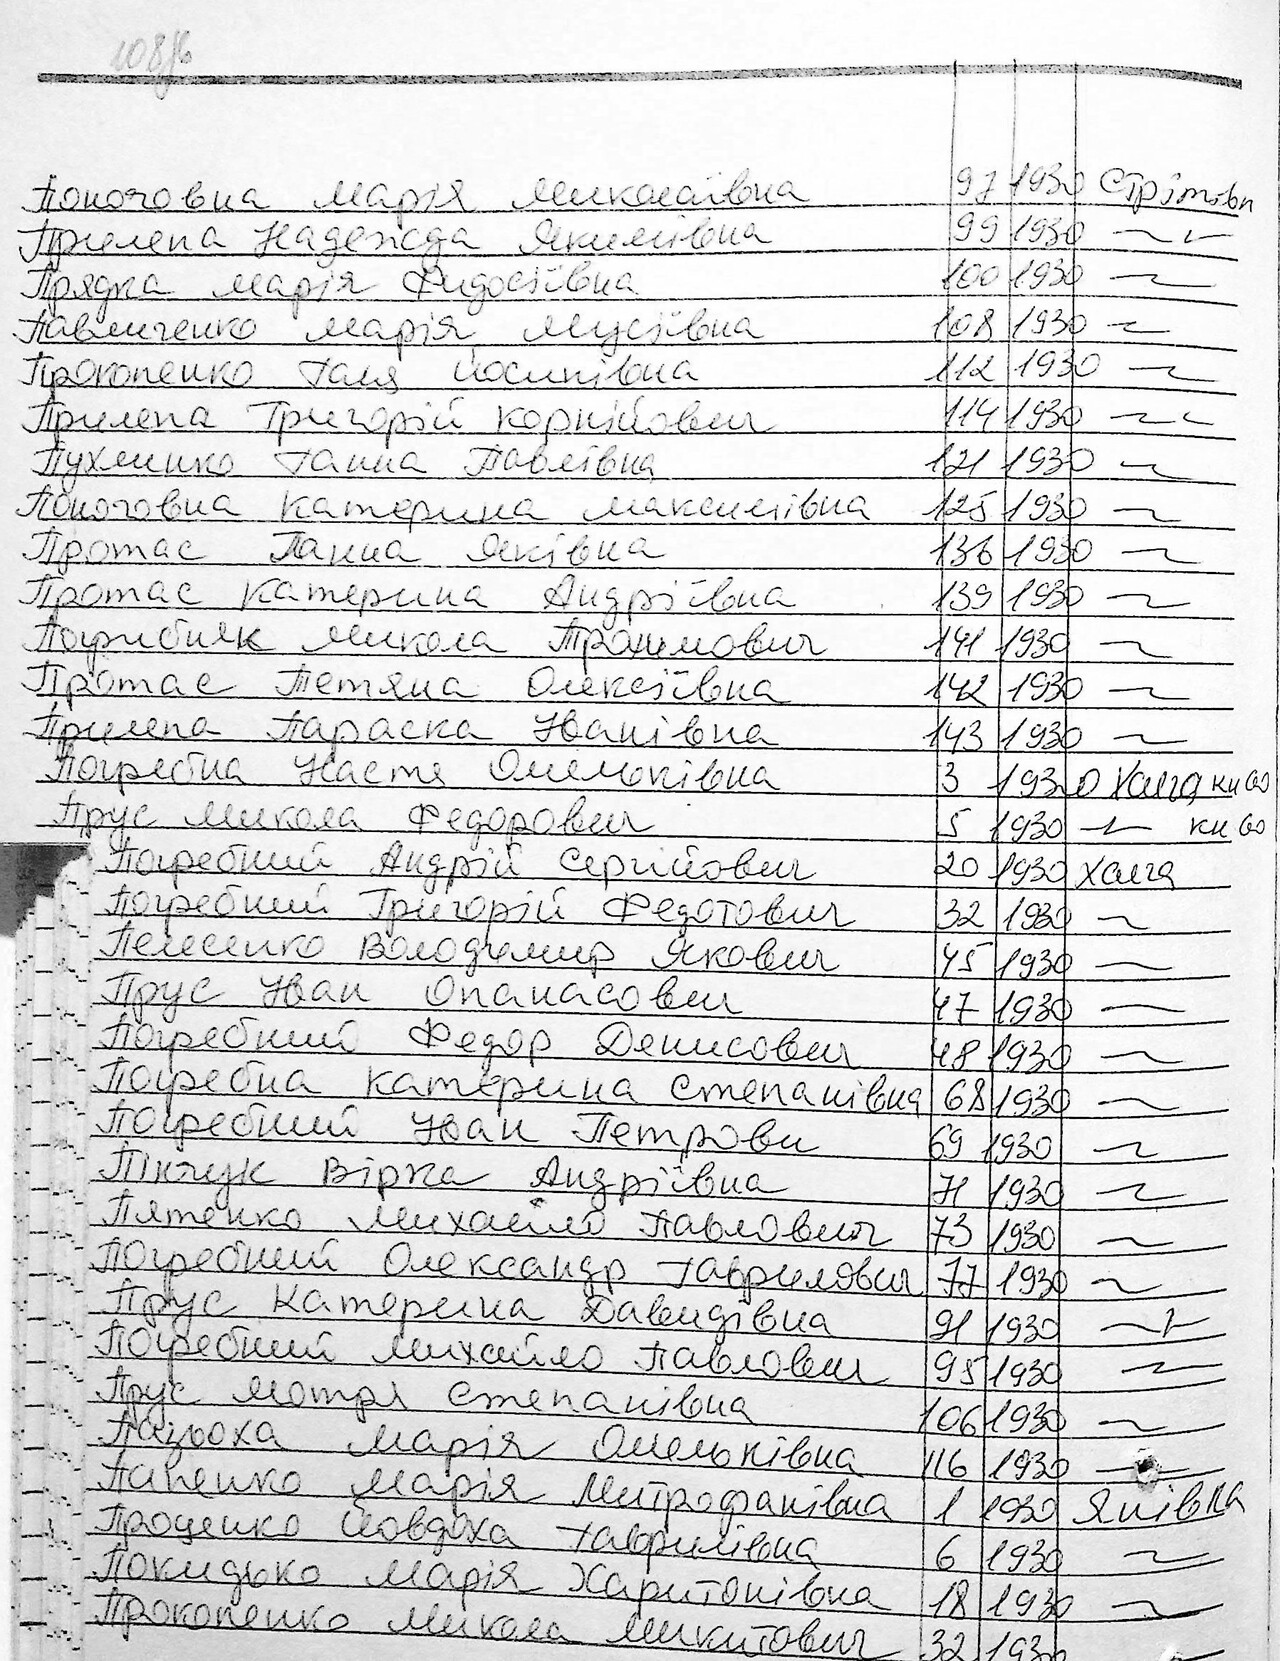 108/б
Поночовна Марія Миколаївна 97 1930 Стрітівк
Прилепа Надежда Якимівна 99 1930 —〃—
Прядка Марія Фидосіївна 100 1930 —〃—
Павличенко Марія Мусіївна 108 1930 —〃—
Прокопенко Галя Йосипівна 112 1930 —〃—
Прилепа Григорій Корнійович 114 1930 —〃—
Пухлинко Ганна Павлівна 121 1930 —〃—
Поночовна Катерина Максимівна 125 1930 —〃—
Протас Ганна Яківна 136 1930 —〃—
Протас Катерина Андріївна 139 1930 —〃—
Погрибняк Микола Трохимович 141 1930 —〃—
Протас Тетяна Олексіївна 142 1930 —〃—
Прилепа Параска Іванівна 143 1930 —〃—
Погребна Настя Омельківна 3 1930 Халча
Прус Микола Федорович 5 1930 —〃—
Погребний Андрій Сергійович 20 1930 Халча
Погребний Григорій Федотович 32 1930 —〃—
Пелесенко Володимир Якович 45 1930 —〃—
Прус Іван Опанасович 47 1930 —〃—
Погребний Федор Денисович 48 1930 —〃—
Погребна Катерина Степанівна 68 1930 —〃—
Погребний Іван Петрови 69 1930 —〃—
Пінчук Вірка Андріївна 71 1930 —〃—
Пятенко Михайло Павлович 73 1930 —〃—
Погребний Олександр Гаврилович 77 1930 —〃—
Прус Катерина Давидівна 91 1930 —〃—
Погребний Михайло Павлович 95 1930 —〃—
Прус Мотря Степанівна 106 1930 —〃—
Пазьоха Марія Омельківна 116 1930 —〃—
Папенко Марія Митрофанівна 1 1930 Янівка
Проценко Йовдоха Гаврилівна 6 1930 —〃—
Покидько Марія Харитонівна 18 1930 —〃—
Прокопенко Микола Микитович 32 1930 —〃—